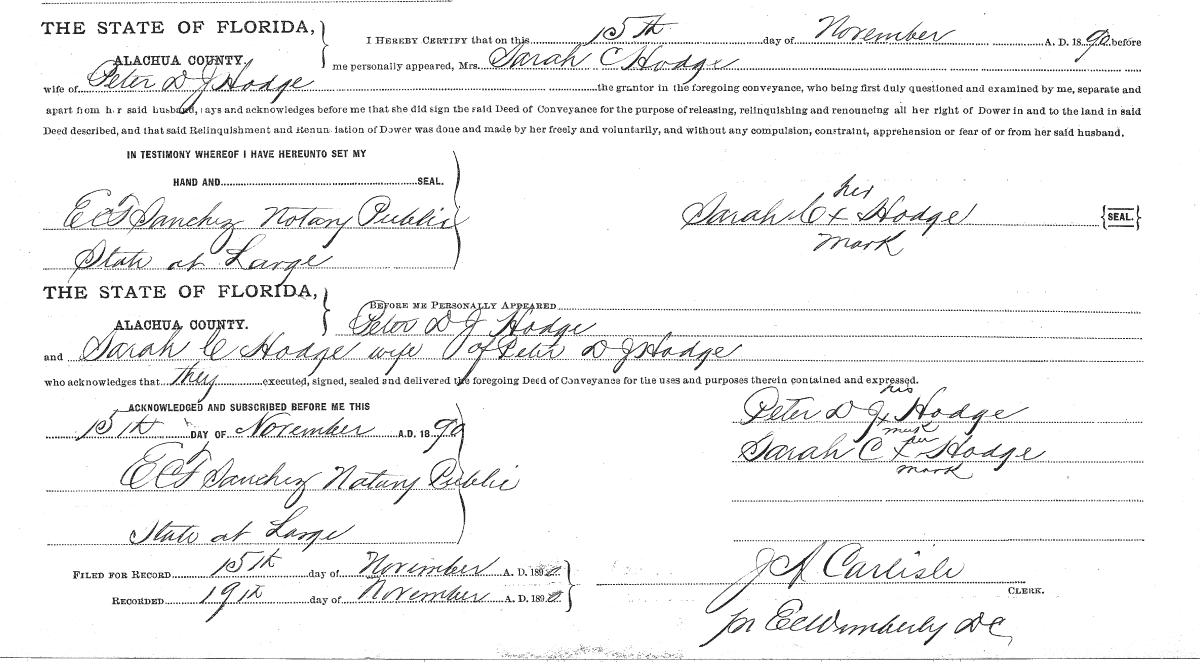 THE STATE OF FLORIDA,
ALACHUA COUNTY.
I HEREBY CERTIFY that on this 15th day of November A. D. 1890 before
me personally appeared, Mrs. Sarah C Hodge
wife of Peter D J Hodge the grantor in the foregoing conveyance, who being first duly questioned and examined by me, separate and
apart from her said husband, says and acknowledges before me that she did sign the said Deed of Conveyance for the purpose of releasing, relinquishing and renouncing all her right of Dower in and to the land in said
Deed described, and that said Relinquishment and Renunciation of Dower was done and made by her freely and voluntarily, and without any compulsion, constraint, apprehension or fear of or from her said husband.
IN TESTIMONY WHEREOF I HAVE HEREUNTO SET MY
HAND AND SEAL.
E C F Sanchez Notary Public
State at Large
her
Sarah C x Hodge {SEAL.}
mark
THE STATE OF FLORIDA,
ALACHUA COUNTY.
BEFORE ME PERSONALLY APPEARED
Peter D J Hodge
and Sarah C Hodge wife of Peter D J Hodge
who acknowledges that they executed, signed, sealed and delivered the foregoing Deed of Conveyance for the uses and purposes therein contained and expressed.
ACKNOWLEDGED AND SUBSCRIBED BEFORE ME THIS
15th DAY OF November A.D. 1890
E C F Sanchez Notary Public
State at Large
his
Peter D J x Hodge
mark
her
Sarah C x Hodge
mark
FILED FOR RECORD 15th day of November A. D. 1890
RECORDED 19th day of November A. D. 1890
J A Carlisle
CLERK.
pr E C Wimberly DC